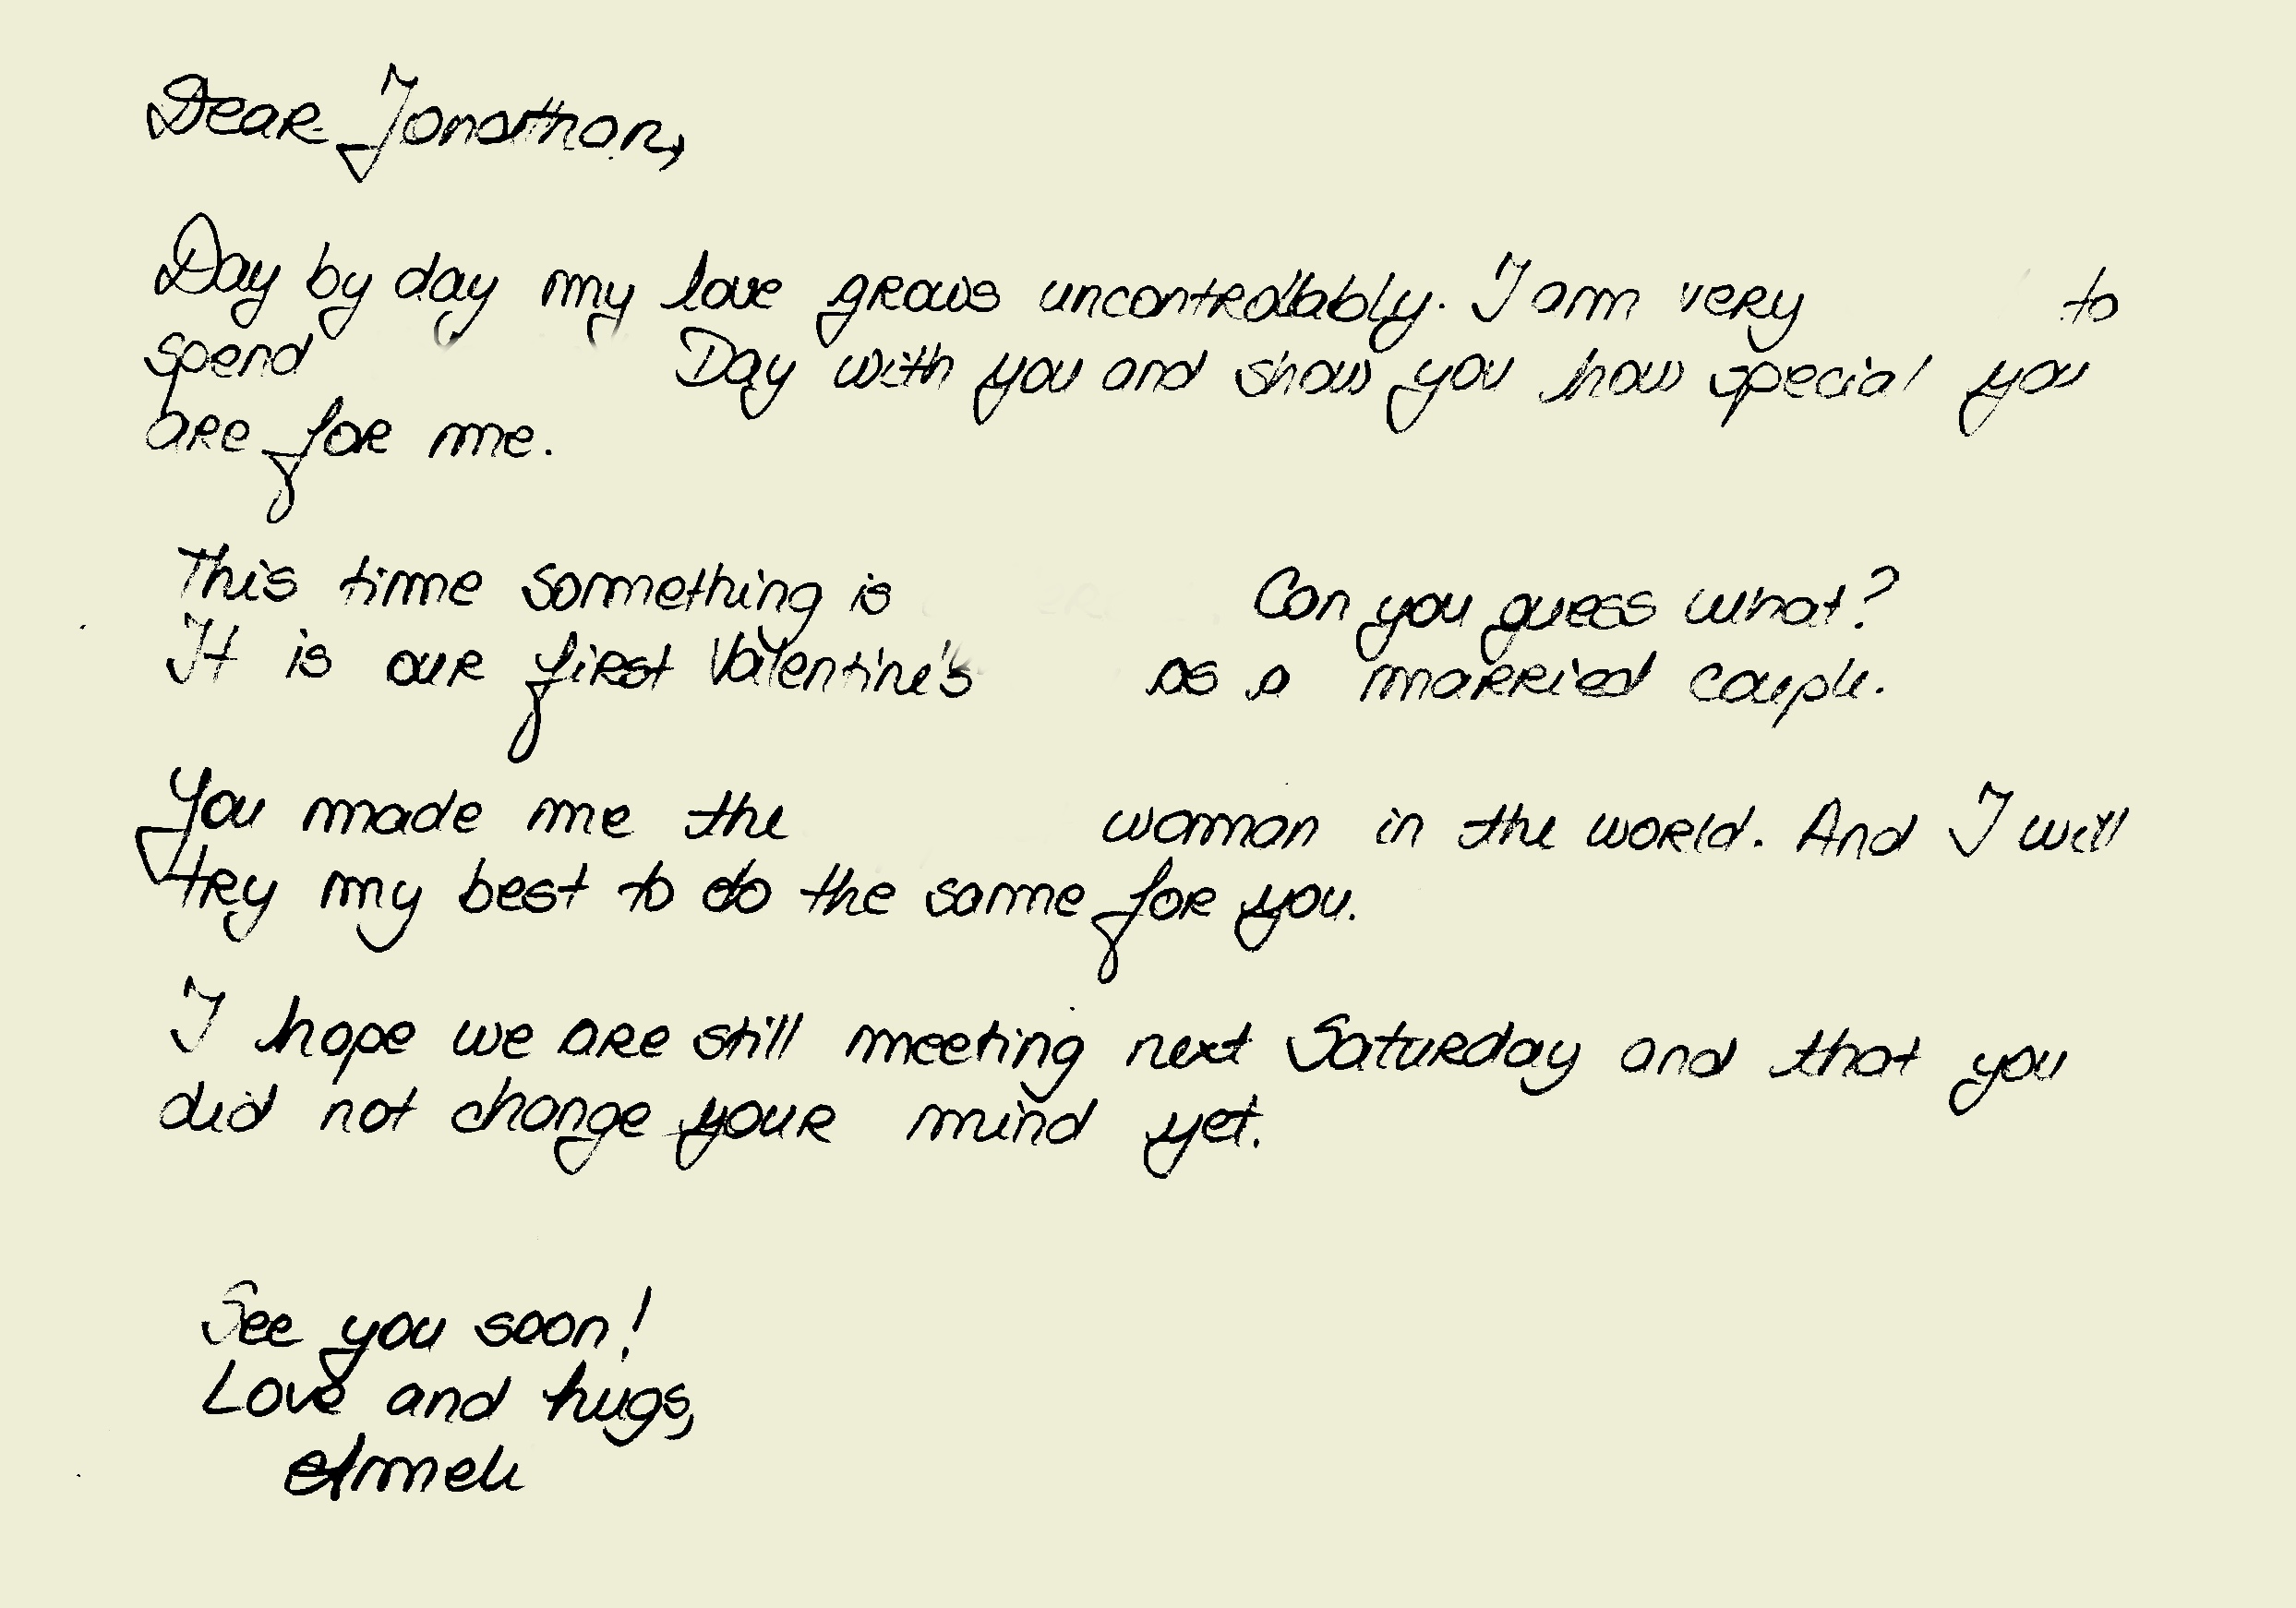 Dear Jonathan,
Day by day my love grows uncontrollably. I am very to
spend Day with you and show you how special you
are for me.
This time something is Can you guess what?
It is our first Valentine's as a married couple.
You made me the woman in the world. And I will
try my best to do the same for you.
I hope we are still meeting next Saturday and that you
did not change your mind yet.
See you soon!
Love and hugs,
Ameli